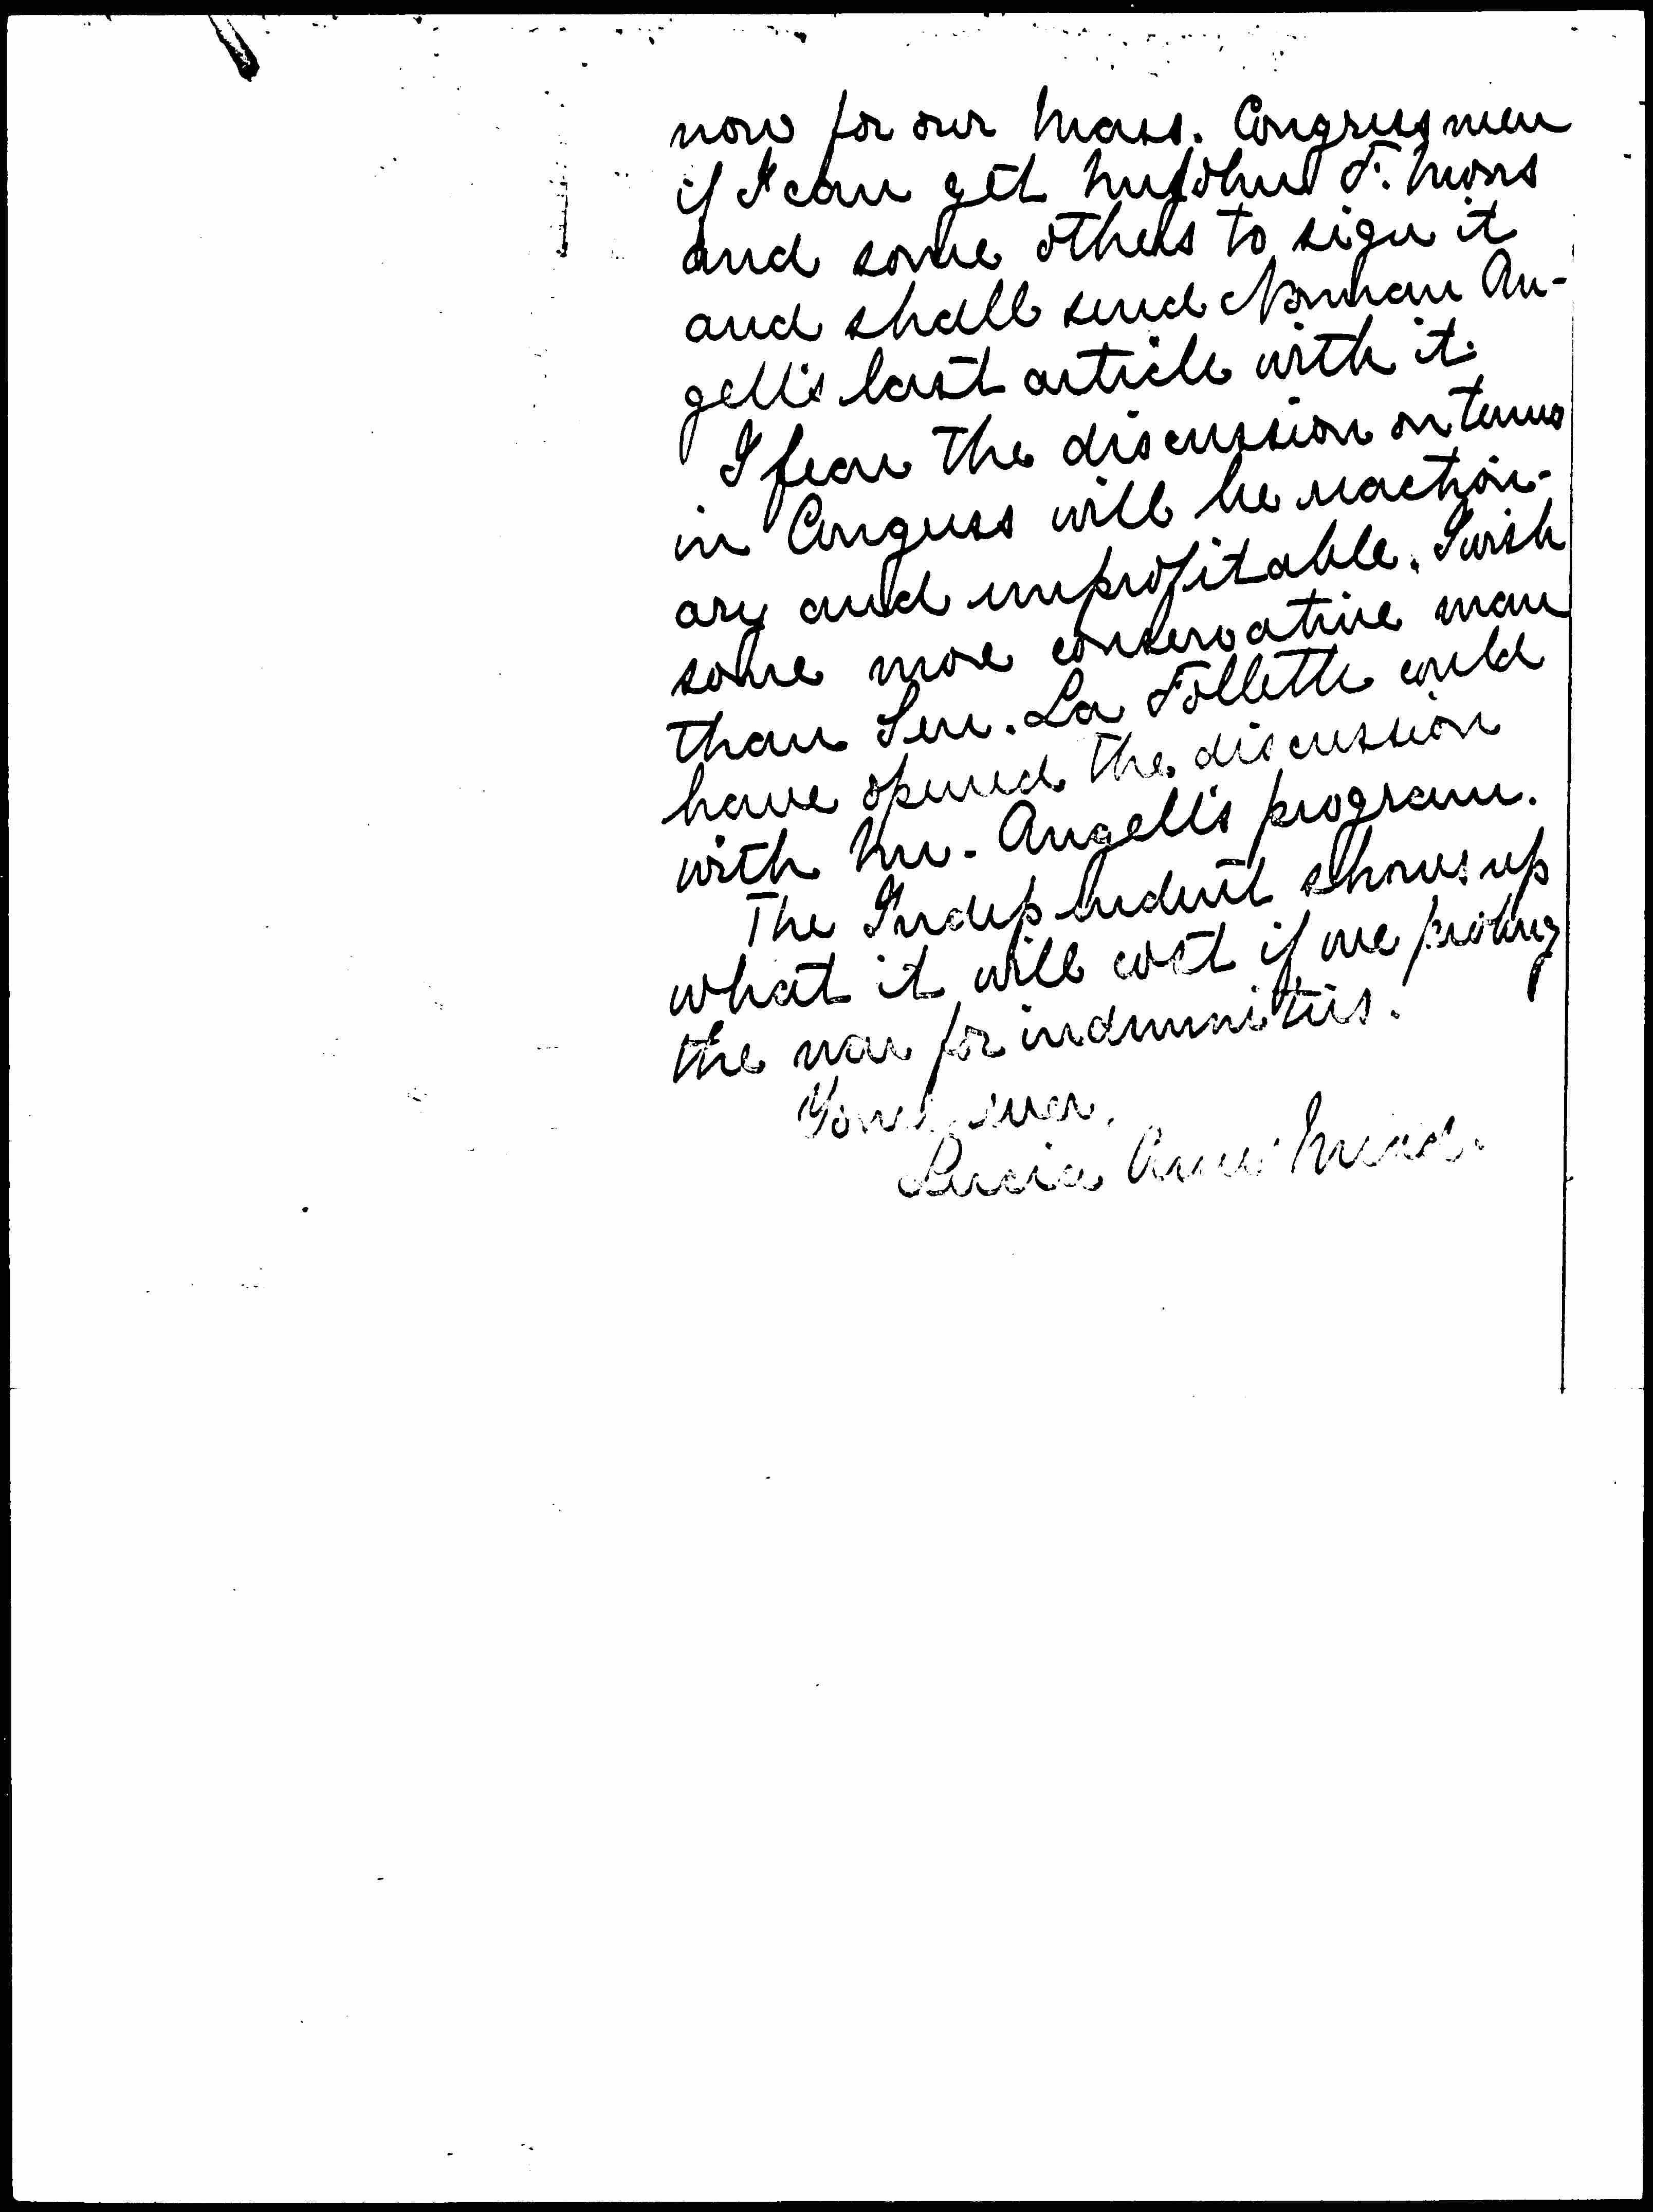 now for our Mass. Congressmen
if I can get Mr John F. Moors
and some others to sign it
and shall send Norman An-
gell's last article with it.
I fear the discussion on terms
in Congress will be reaction-
ary and unprofitable. I wish
some more conservative man
than Sen. La Follette could
have opened the discussion
with Mr. Angell's program.
The Independent shows up
what it will cost if we prolong
the war for indemnities.
Yours ever,
Lucia Ames Mead.